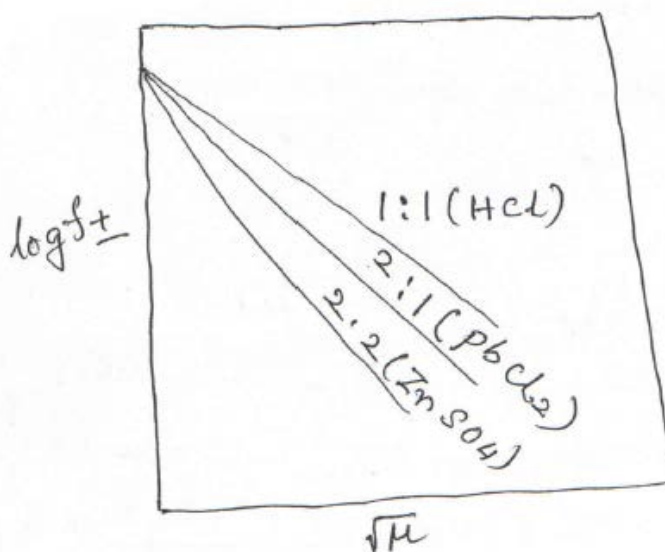 log f±
1:1 (HCl)
2:1 (PbCl2)
2.2 (ZnSO4)
√μ